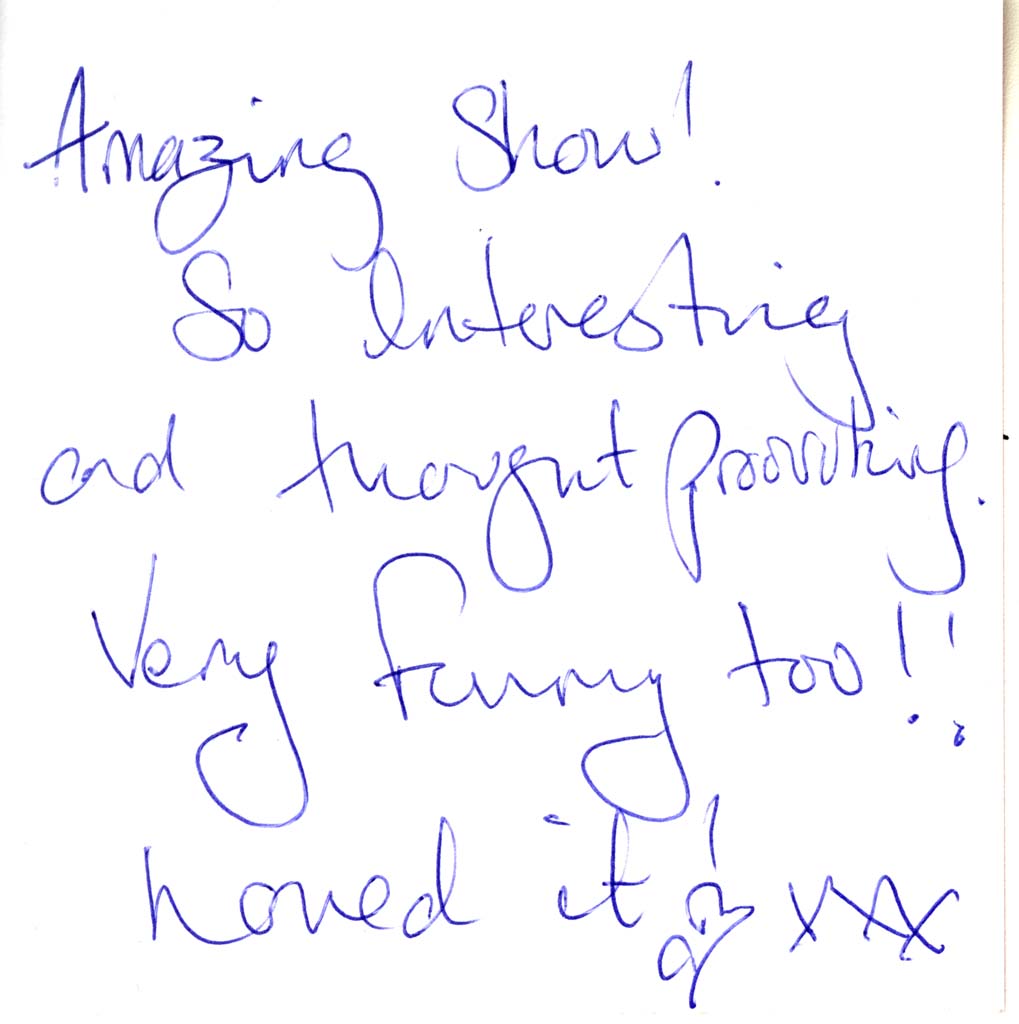 Amazing Show!
So Interesting
and thought provoking.
Very funny too!!
Loved it! xxx